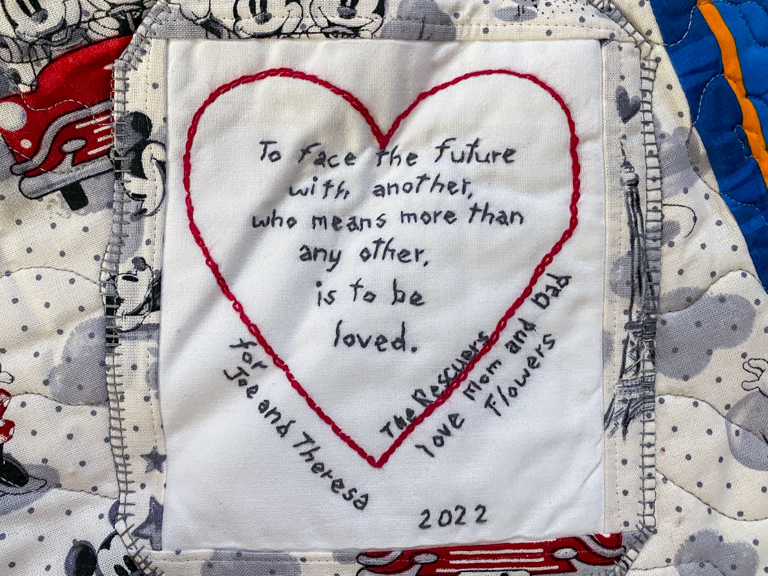 To face the future
with another,
who means more than
any other,
is to be
loved.
The Rescuers
for
Joe and Theresa
love Mom and Dad
Flowers
2022